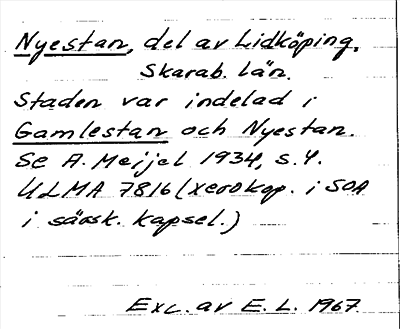 Nyestan, del av Lidköping,
Skarab. län.
Staden var indelad i
Gamlestan och Nyestan.
Se A. Meijel 1934, s. 4.
ULMA 7816 (xerokop. i SOA
i särsk. kapsel.)
Exc. av E. L. 1967